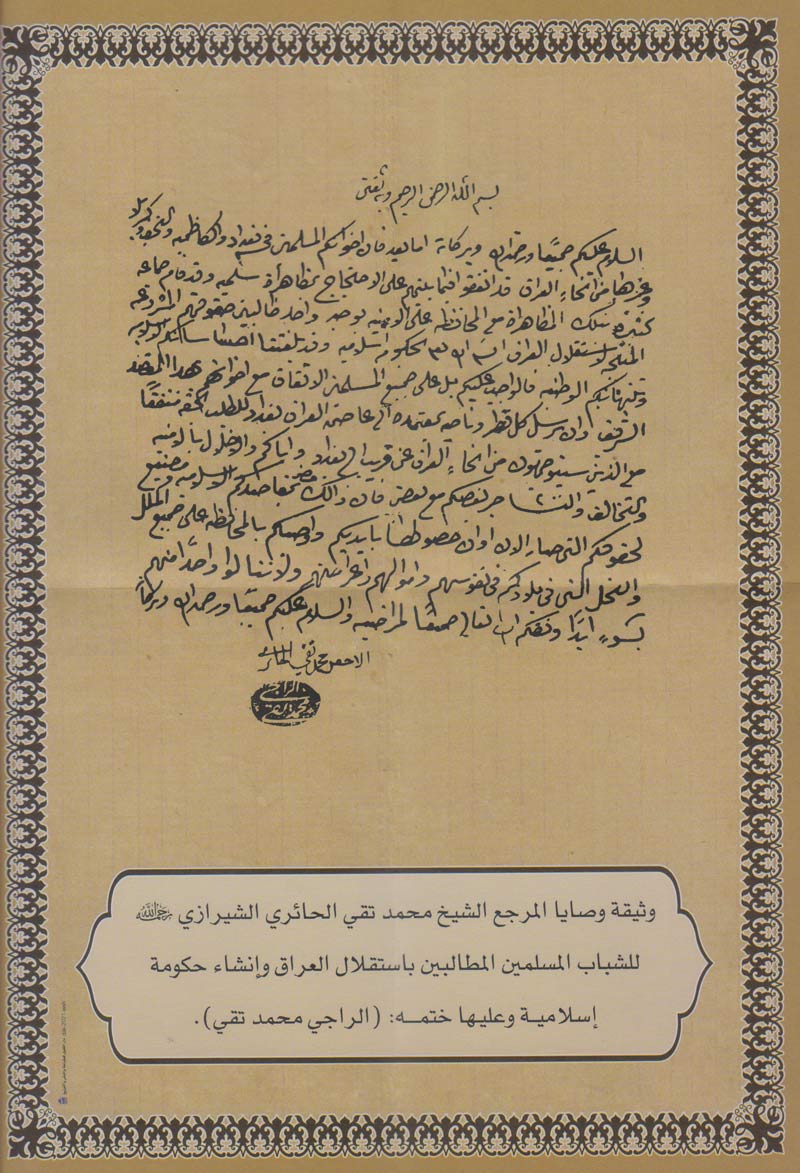 بسم الله الرحمن الرحيم وبه ثقتي
السلام عليكم جميعًا ورحمة الله وبركاته اما بعد فان اخوانكم المسلمين في بغداد والكاظمية والنجف وكربلا
وغيرها من انحاء العراق قد اتفقوا فيما بينهم على الاحتجاج بمظاهرات سلمية وقد قام جماعة
كثيرة بتلك المظاهرة مع المحافظة على الامنية بوجه واحد طالبين حقوقهم المشروعة
المنتجة لاستقلال العراق انشاء الله بحكومة اسلامية وقد بلغتنا
الوطنية فالواجب عليكم بل على جميع المسلمين الاتفاق مع اخوانهم بهذا المقصد
الشريف وان يرسل كل قطر وناحية بمعتمده الى عاصمة العراق بغداد للطلب بحقه متفقًا
مع الذين سيتوجهون من انحاء العراق عن قريب الى بغداد واياكم والاخلال بالامنية
والتخالف والتشاجر بعضكم مع بعض فان ذلك مضر بمقاصدكم الاسلامية ومضيع
لحقوقكم التي صار الان اوان حصولها بايديكم واوصيكم بالمحافظة على جميع الملل
والنحل التي في بلادكم في نفوسهم واموالهم واعراضهم ولا تنالوا واحدًا منهم
بسوء ابدًا وفقكم الله تعالى جميعًا لمراضيه والسلام عليكم جميعًا ورحمة الله وبركاته
الاحقر محمد تقي الحائري
الراجي محمد تقي
وثيقة وصايا المرجع الشيخ محمد تقي الحائري الشيرازي رحمه الله
للشباب المسلمين المطالبين باستقلال العراق وإنشاء حكومة
إسلامية وعليها ختمه: (الراجي محمد تقي).